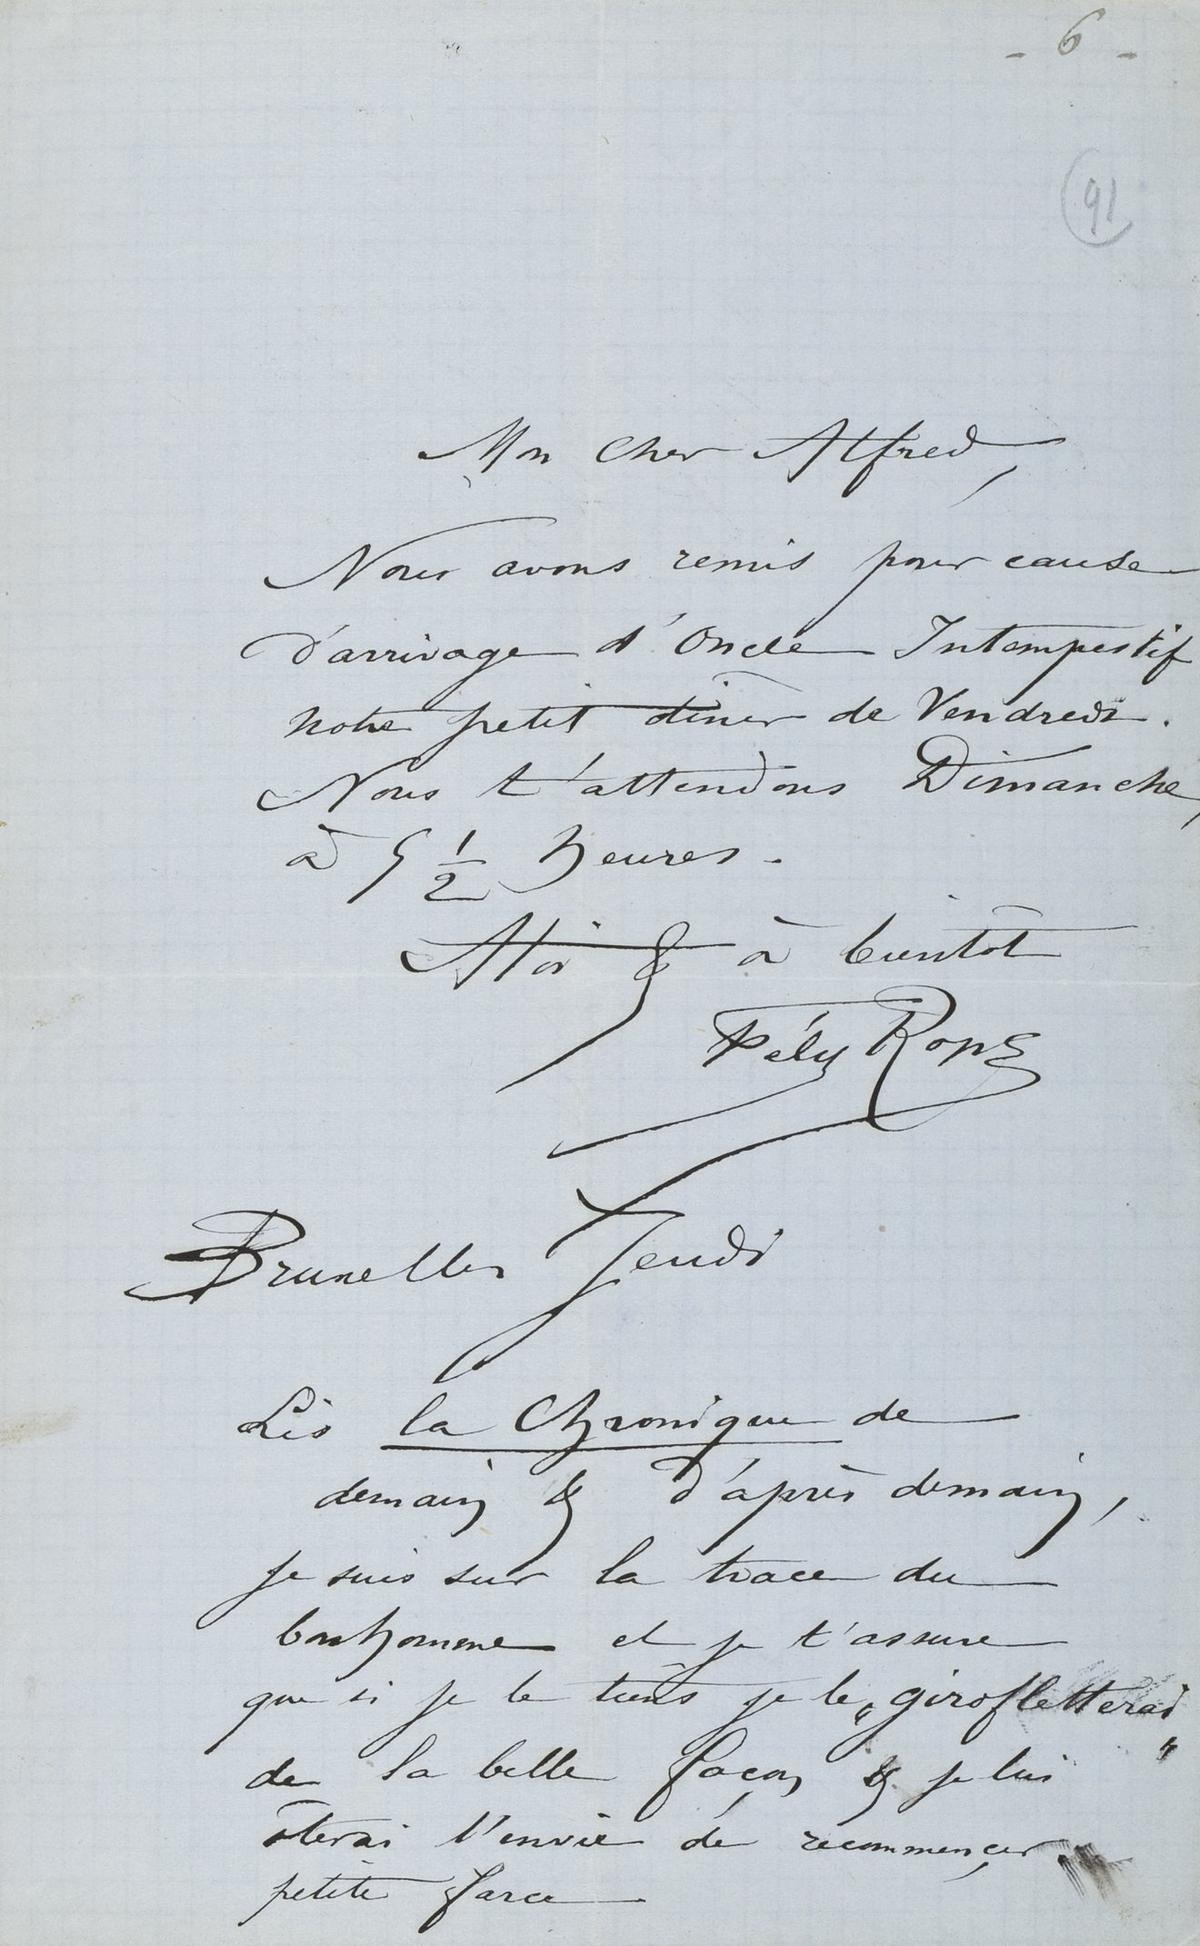 - 6 -
91
Mon cher Alfred,
Nous avons remis pour cause
d'arrivage d'Oncle Intempestif
notre petit diner de Vendredi.
Nous t'attendons Dimanche,
à 5 1/2 heures.
à & à bientôt
Fély Rops
Bruxelles Jeudi
Lis la Chronique de
demain & d'après demain,
je suis sur la trace du
bonhomme et je t'assure
que si je le tiens je le „girofletterai"
de la belle façon & je lui
ôterai l'envie de recommencer
petite farce